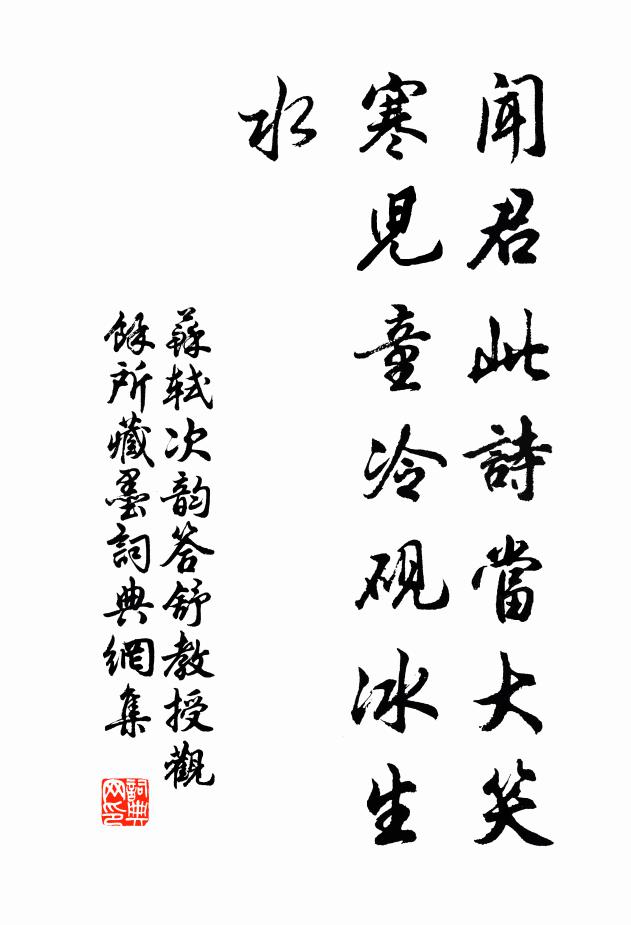 聞君此詩當大笑
寒児童冷硯冰生
水
蘇軾次韵答舒教授觀
餘所藏墨詞典網集
詞典网印